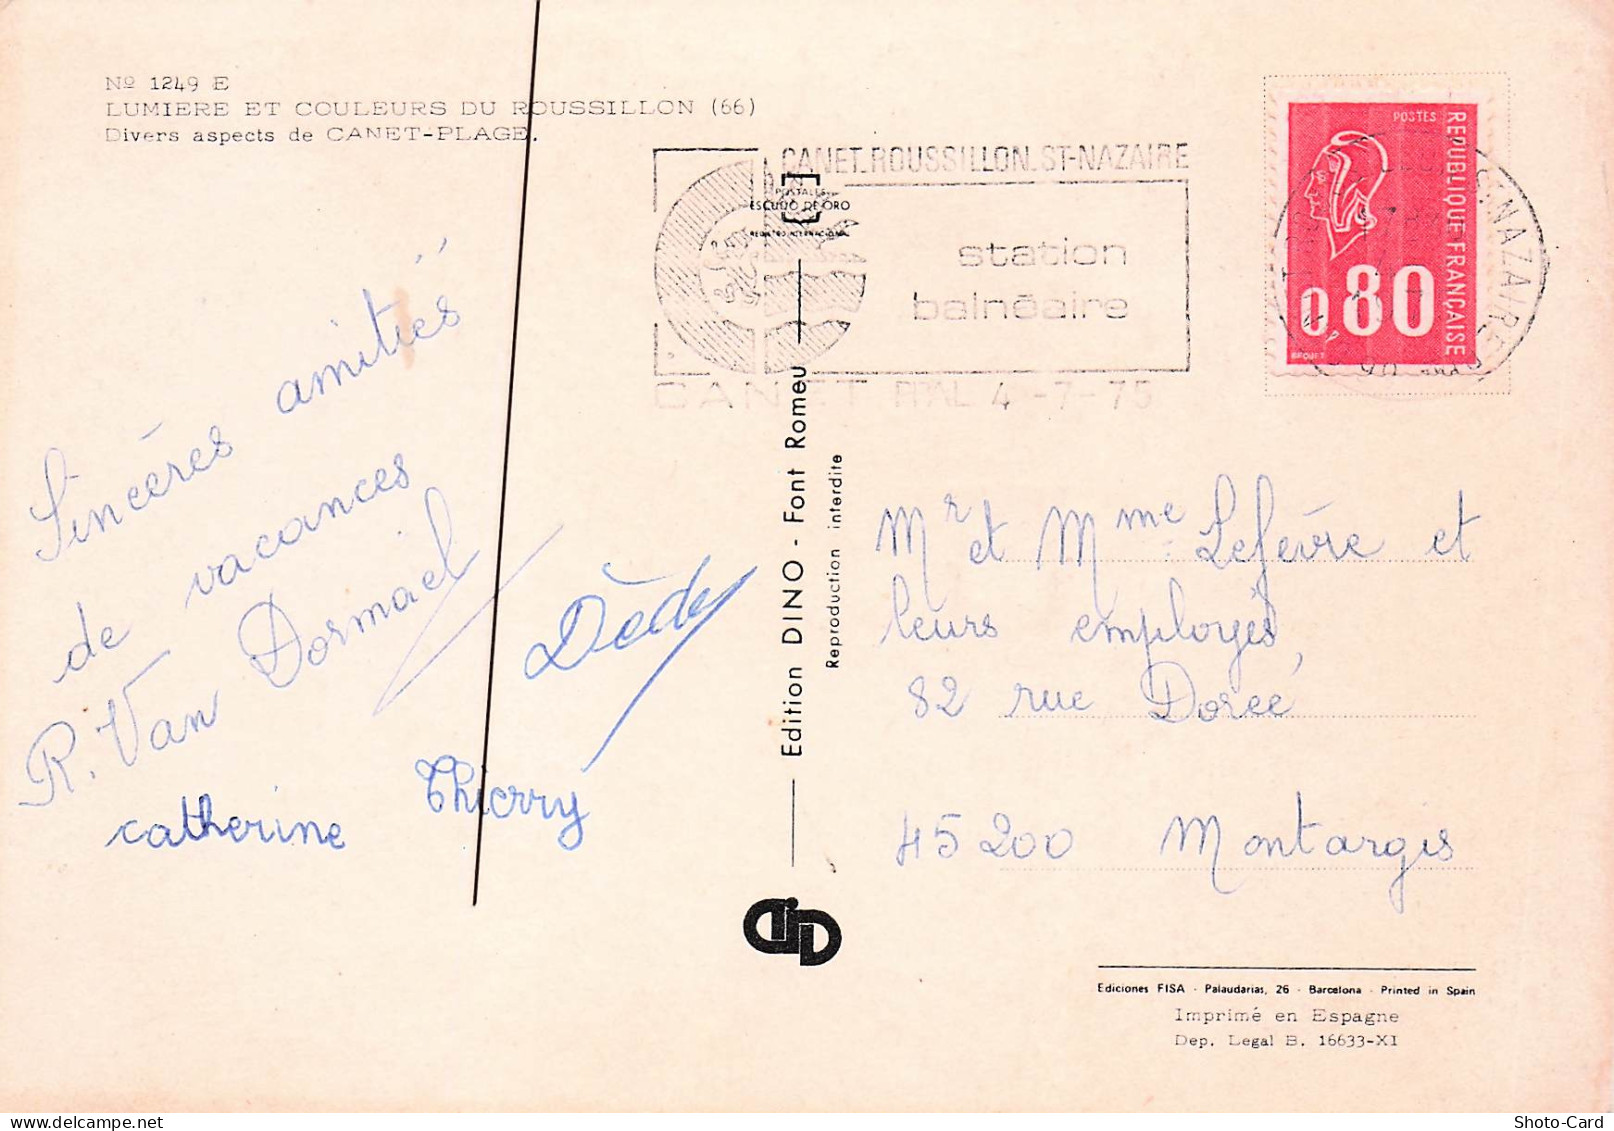 Nº 1249 E
LUMIERE ET COULEURS DU ROUSSILLON (66)
Divers aspects de CANET-PLAGE.
CANET.ROUSSILLON.ST-NAZAIRE
station
balnéaire
CANET PPAL 4-7-75
POSTALES
ESCUDO DE ORO
REGISTRO INTERNACIONAL
POSTES
REPUBLIQUE FRANÇAISE
0,80
BEQUET
ST-NAZAIRE
Sincères amitiés
de vacances
R. Van Dormael
Dèdy
catherine Thierry
Edition DINO - Font Romeu
Reproduction interdite
Mr et Mme Lefèvre et
leurs employés
82 rue Dorée
45200 Montargis
Ediciones FISA - Palaudarias, 26 - Barcelona - Printed in Spain
Imprimé en Espagne
Dep. Legal B. 16633-XI
Shoto-Card